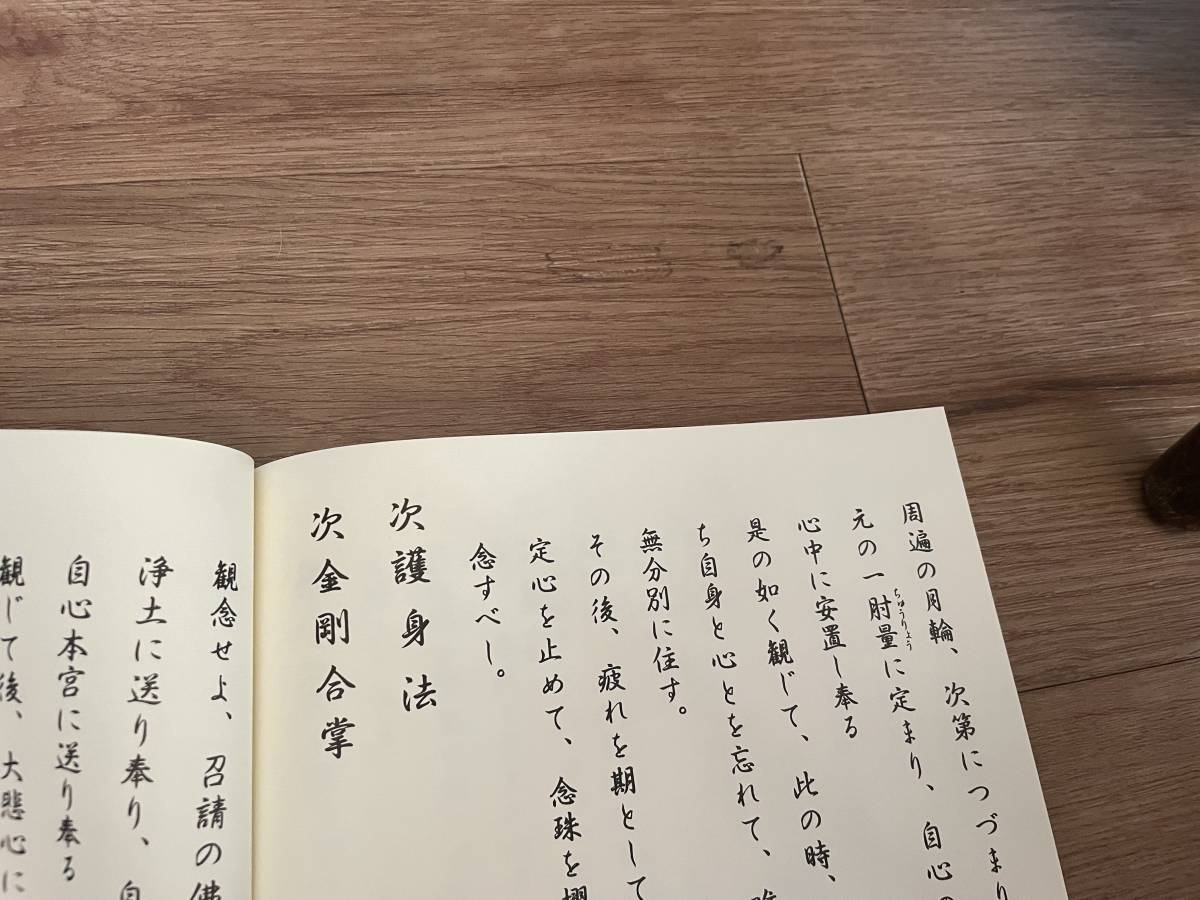 周遍の月輪、次第につづまり
元の一肘量に定まり、自心の
ちゅうりょう
心中に安置し奉る
是の如く観じて、此の時、
ち自身と心とを忘れて、
無分別に住す。
その後、疲れを期として
定心を止めて、念珠を
念すべし。
次護身法
次金剛合掌
観念せよ、召請の佛
浄土に送り奉り、自
自心本宮に送り奉る
観じて後、大悲心に